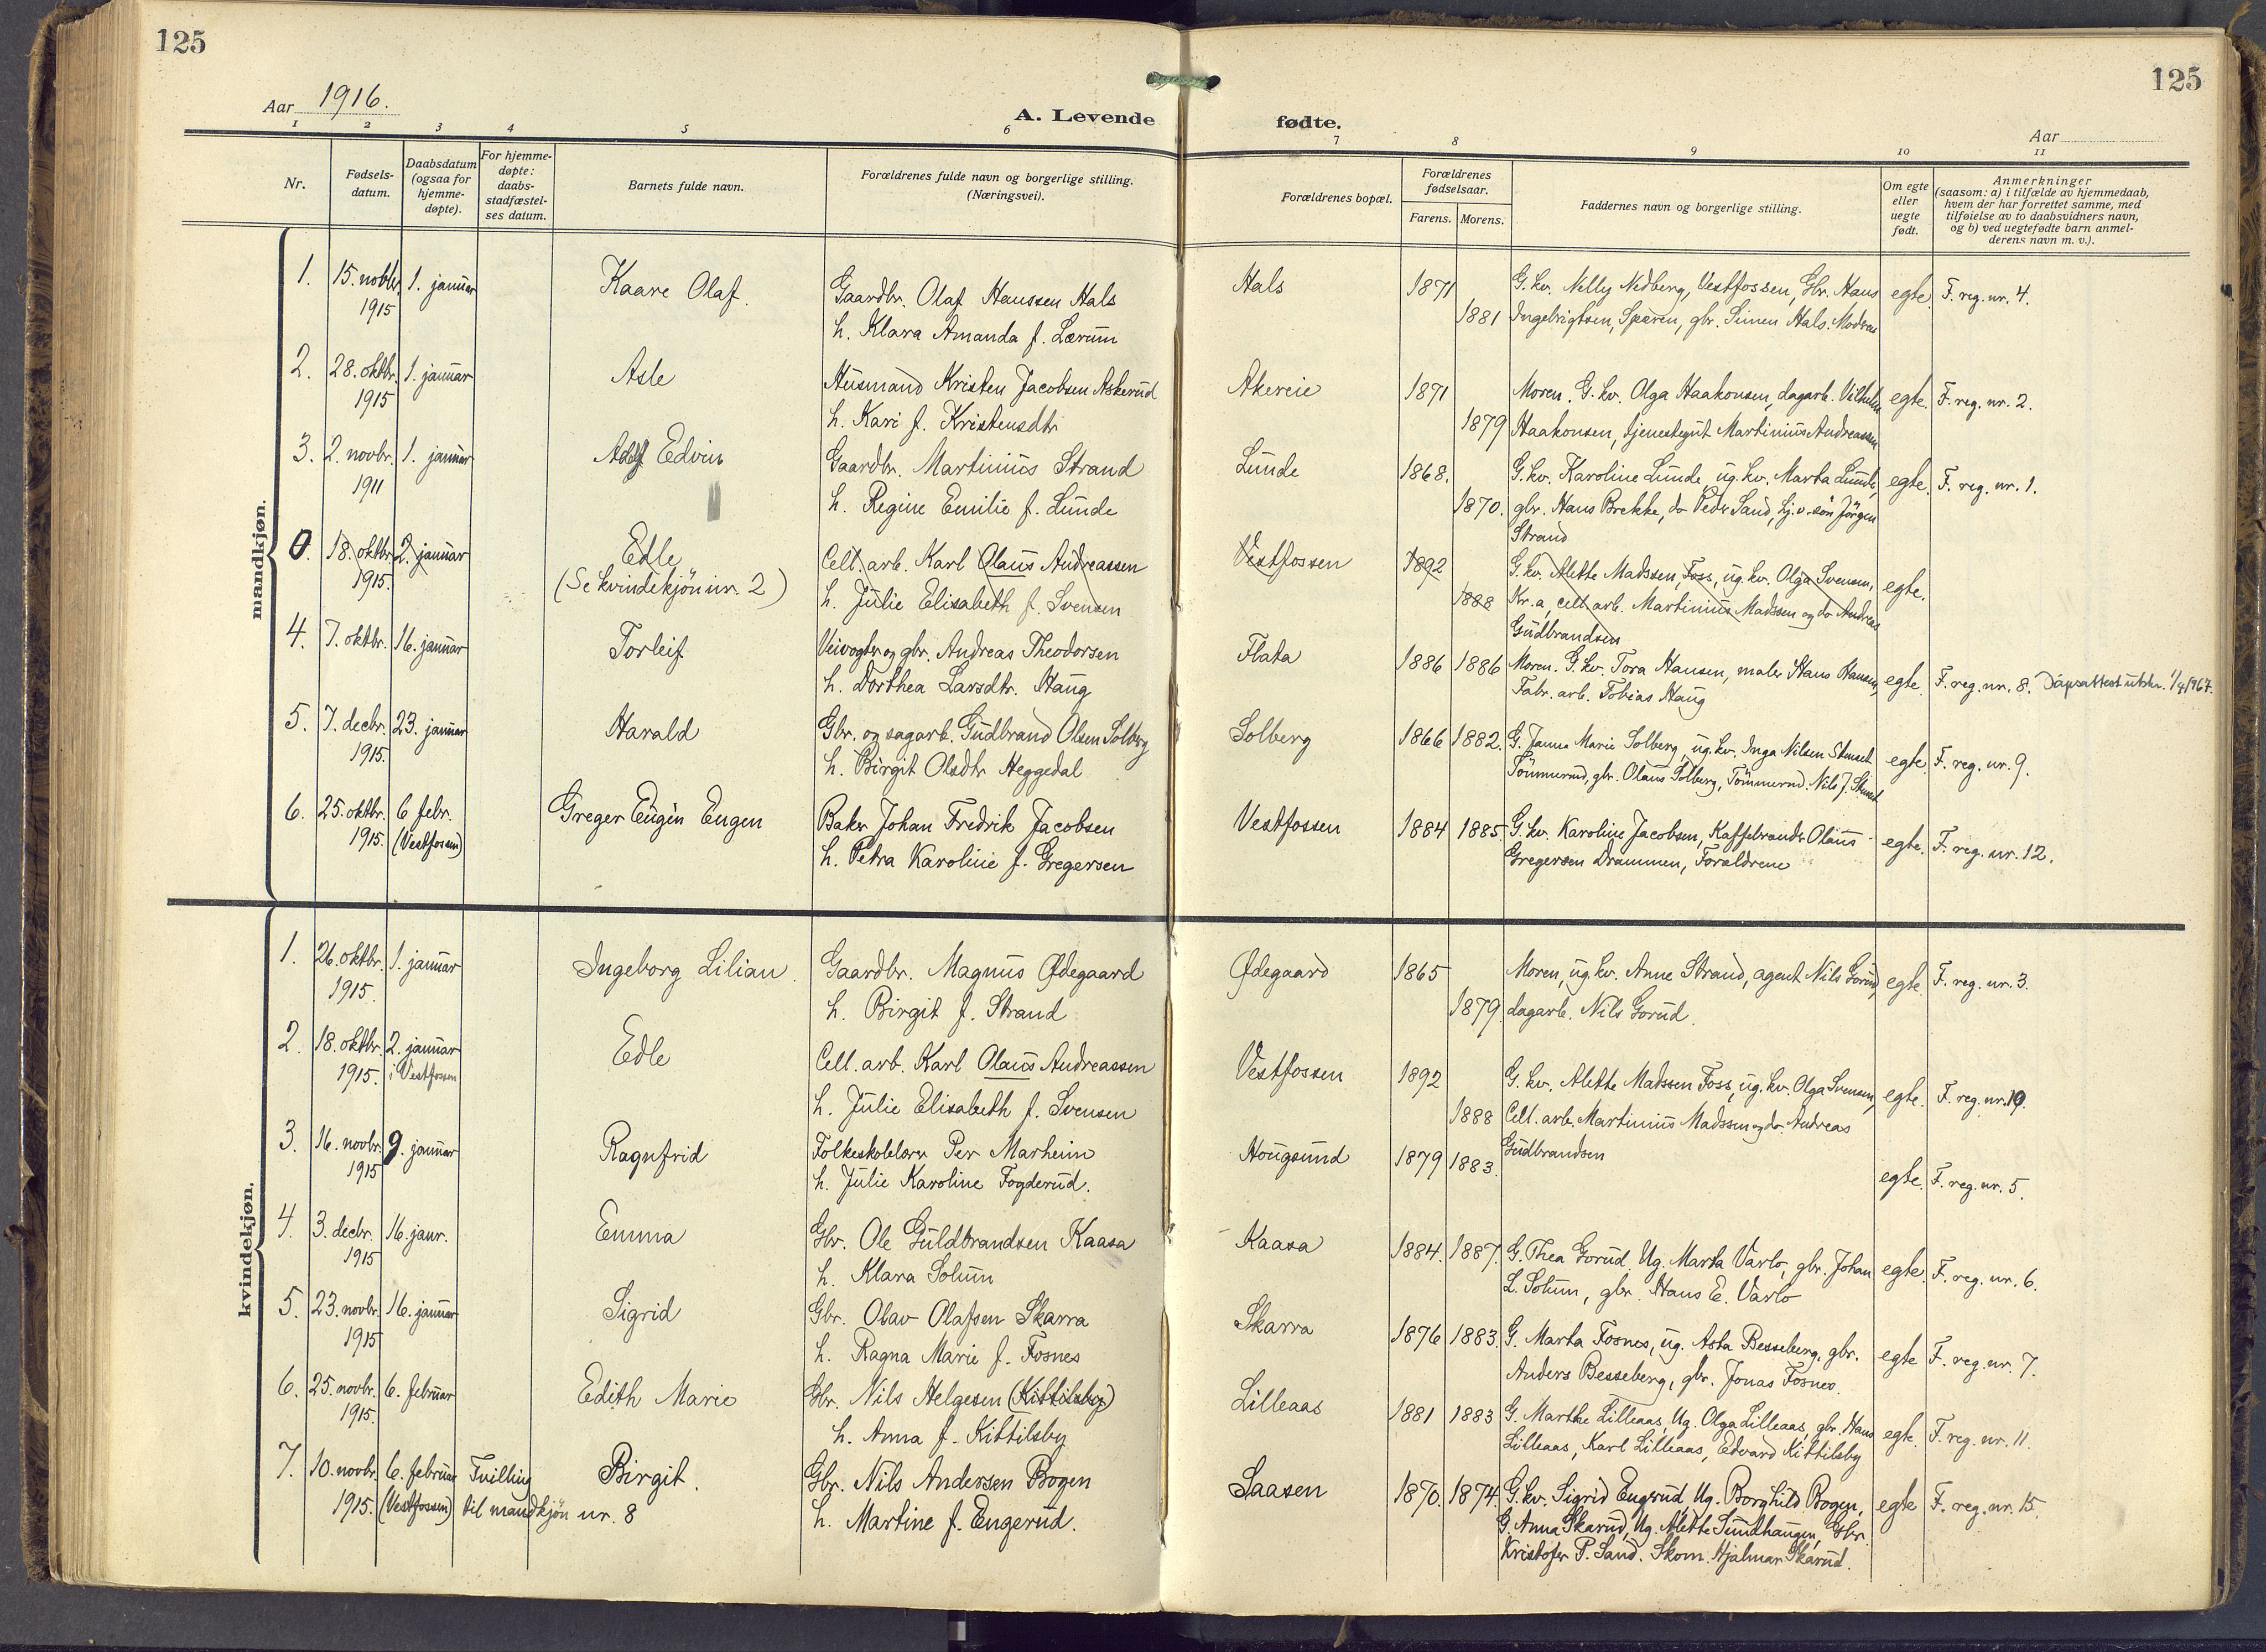 125
125
Aar 1916.
A. Levende fødte.
Aar
1 2 3 4 5 6 7 8 9 10 11
Nr.
Fødsels-
datum.
Daabsdatum
(ogsaa for
hjemme-
døpte).
For hjemme-
døpte:
daabs-
stadfæstel-
ses datum.
Barnets fulde navn.
Forældrenes fulde navn og borgerlige stilling.
(Næringsvei).
Forældrenes bopæl.
Forældrenes
fødselsaar.
Farens. Morens.
Faddernes navn og borgerlige stilling.
Om egte
eller
uegte
født.
Anmerkninger
(saasom: a) i tilfælde av hjemmedaab,
hvem der har forrettet samme, med
tilføielse av to daabsvidners navn,
og b) ved uegtefødte barn anmel-
derens navn m. v.).
mandkjøn.
1. 15. novbr. 1. januar Kaare Olaf. Gaardbr. Olaf Hanssen Hals Hals 1871 G. kv. Nelly Nedberg, Vestfossen, Gbr. Hans egte. F. reg. nr. 4.
1915 h. Klara Amanda f. Lærum 1881 Ingebrigtsen, Sparen, gbr. Simen Hals. Modren
2. 28. oktbr. 1. januar Asle Husmand Kristen Jacobsen Askerud Akereie 1871 Moren. G. kv. Olga Haakonsen, dagarb. Vilhelm egte. F. reg. nr. 2.
1915 h. Kari f. Kristensdtr 1879 Haakonsen, tjenestegut Martinius Andreassen
3. 2. novbr. 1. januar Adolf Edvin Gaardbr. Martinius Strand Lunde 1868. G. kv. Karoline Lunde, ug. kv. Marta Lunde, egte. F. reg. nr. 1.
1911 h. Regine Emilie f. Lunde 1870. gbr. Hans Brekke, do Peder Sand, Lj. v. søn Jörgen
Strand
0. 18. oktbr. 2. januar Edle Cell. arb. Karl Olaus Andreassen Vestfossen 1892 G. kv. Alette Madssen, Foss, ug. kv. Olga Svensen, egte.
1915. (Se kvindekjön nr. 2) h. Julie Elisabeth f. Svensen 1888 Kr.a, cell. arb. Martinius Madssen og do Andreas
Gudbrandsen
4. 7. oktbr. 16. januar Torleif Veivogter og gbr. Andreas Theodorsen Flata 1886 1886 Moren. G. kv. Tora Hansen, maler Hans Hansen, egte. F. reg. nr. 8. Dåpsattest utskr. 1/4 1967.
h. Dorthea Larsdtr. Haug Fabr. arb. Tobias Haug
5. 7. decbr. 23. januar Harald Gbr. og sagarb. Gudbrand Olsen Solberg Solberg 1866 1882. G. Janna Marie Solberg, ug. kv. Inga Nilsen egte. F. reg. nr. 9.
1915. h. Birgit Olsdtr Heggedal Tömmerud, gbr. Olaus Solberg, Tömmerud. Nils J.
6. 25. oktbr. 6 febr. Greger Eugen Eugen Baker Johan Fredrik Jacobsen Vestfossen 1884 1885. G. kv. Karoline Jacobsen, Kaffebrander Olaus egte. F. reg. nr. 12.
1915. (Vestfossen) h. Petra Karoline f. Gregersen Gregersen Drammen, Forældrene
kvindekjøn.
1. 26. oktbr. 1. januar Ingeborg Lilian. Gaardbr. Magnus Ødegaard Ødegaard 1865 Moren, ug. kv. Anne Strand, agent Nils Gorud, egte. F. reg. nr. 3.
1915. h. Birgit f. Strand 1879. dagarb. Nils Gorud.
2. 18. oktbr. 2. januar Edle Cell. arb. Karl Olaus Andreassen Vestfossen 1892 G. kv. Alette Madssen Foss, ug. kv. Olga Svensen, egte. F. reg. nr. 10.
1915. i Vestfossen h. Julie Elisabeth f. Svensen 1888 Cell. arb. Martinius Madssen og do. Andreas
Gudbrandsen
3. 16. novbr. 9. januar Ragnfrid Folkeskolelærer Per Marheim Hougsund 1879 1883. egte. F. reg. nr. 5.
1915 h. Julie Karoline Fogderud.
4. 3. decbr. 16. janr. Emma Gbr. Ole Guldbrandsen Kaasa Kaasa 1884. 1887. G. Thea Gorud. Ug. Marta Varlo, gbr. Johan egte. F. reg. nr. 6.
1915 h. Klara Solum L. Solum, gbr. Hans E. Varlo
5. 23. novbr. 16. januar Sigrid Gbr. Olav Olafsen Skarra Skarra 1876 1883. G. Marta Fosnes, ug. Asta Besseberg, gbr. egte F. reg. nr. 7.
1915 h. Ragna Marie f. Fosnes Anders Besseberg, gbr. Jonas Fosnes.
6. 25. novbr. 6. februar Edith Marie Gbr. Nils Helgesen (Kittilsby) Lilleaas 1881 1883 G. Marthe Lilleaas, Ug. Olga Lilleaas, gbr. Hans egte. F. reg. nr. 11.
1915. h. Anna f. Kittilsby Lilleaas, Karl Lilleaas, Edvard Kittilsby
7. 10. novbr. 6. februar Tvilling Birgit. Gbr. Nils Andersen Bogen Saasen 1870. 1874. G. kv. Sigrid Engerud, Ug. Borghild Bogen, egte F. reg. nr. 15.
1915. (Vestfossen) til mandkjön nr. 8 h. Martine f. Engerud. G. Anna Skarud, Ug. Alette Sundhaugen, Gbr.
Kristofer P. Sand. Skom. Hjalmar Skarud.